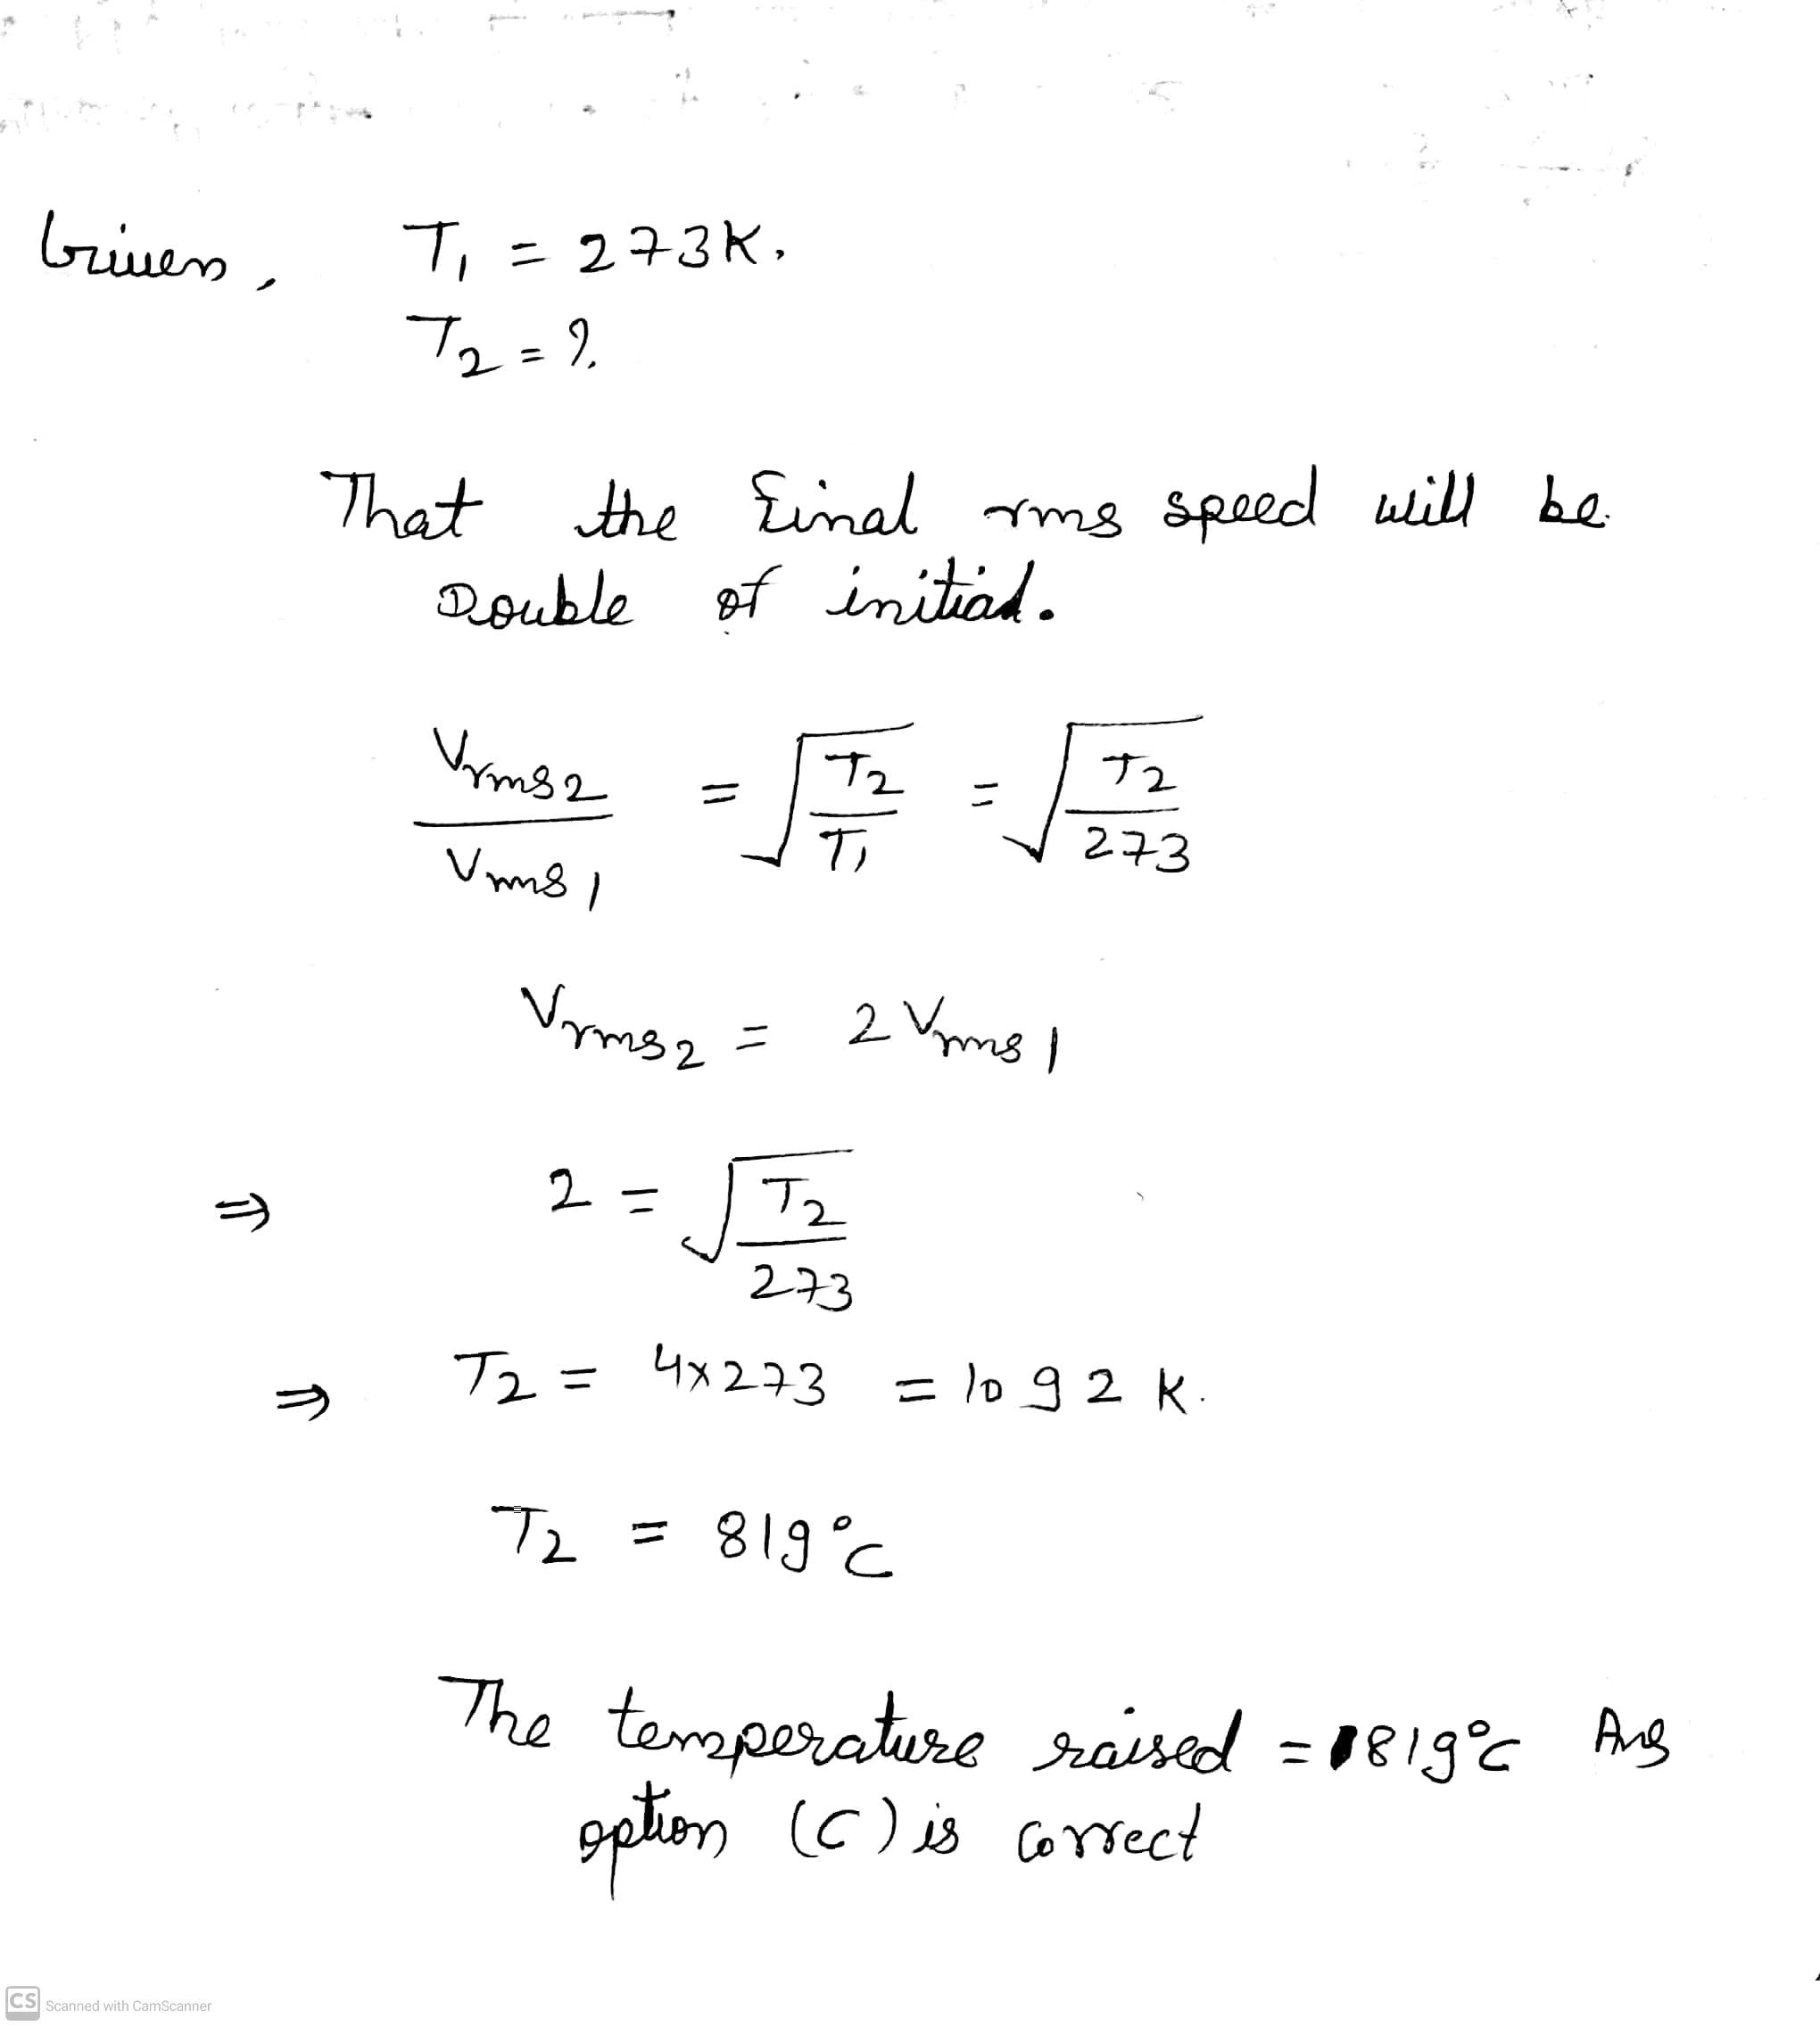 Given, T₁ = 273K,
T₂ = ?
That the final rms speed will be
Double of initial.
Vrms2 / Vrms1 = √(T₂/T₁) = √(T₂/273)
Vrms2 = 2Vrms1
⇒ 2 = √(T₂/273)
⇒ T₂ = 4x273 = 1092 K.
T₂ = 819°C
The temperature raised = 819°C Ans
option (C) is correct
CS Scanned with CamScanner